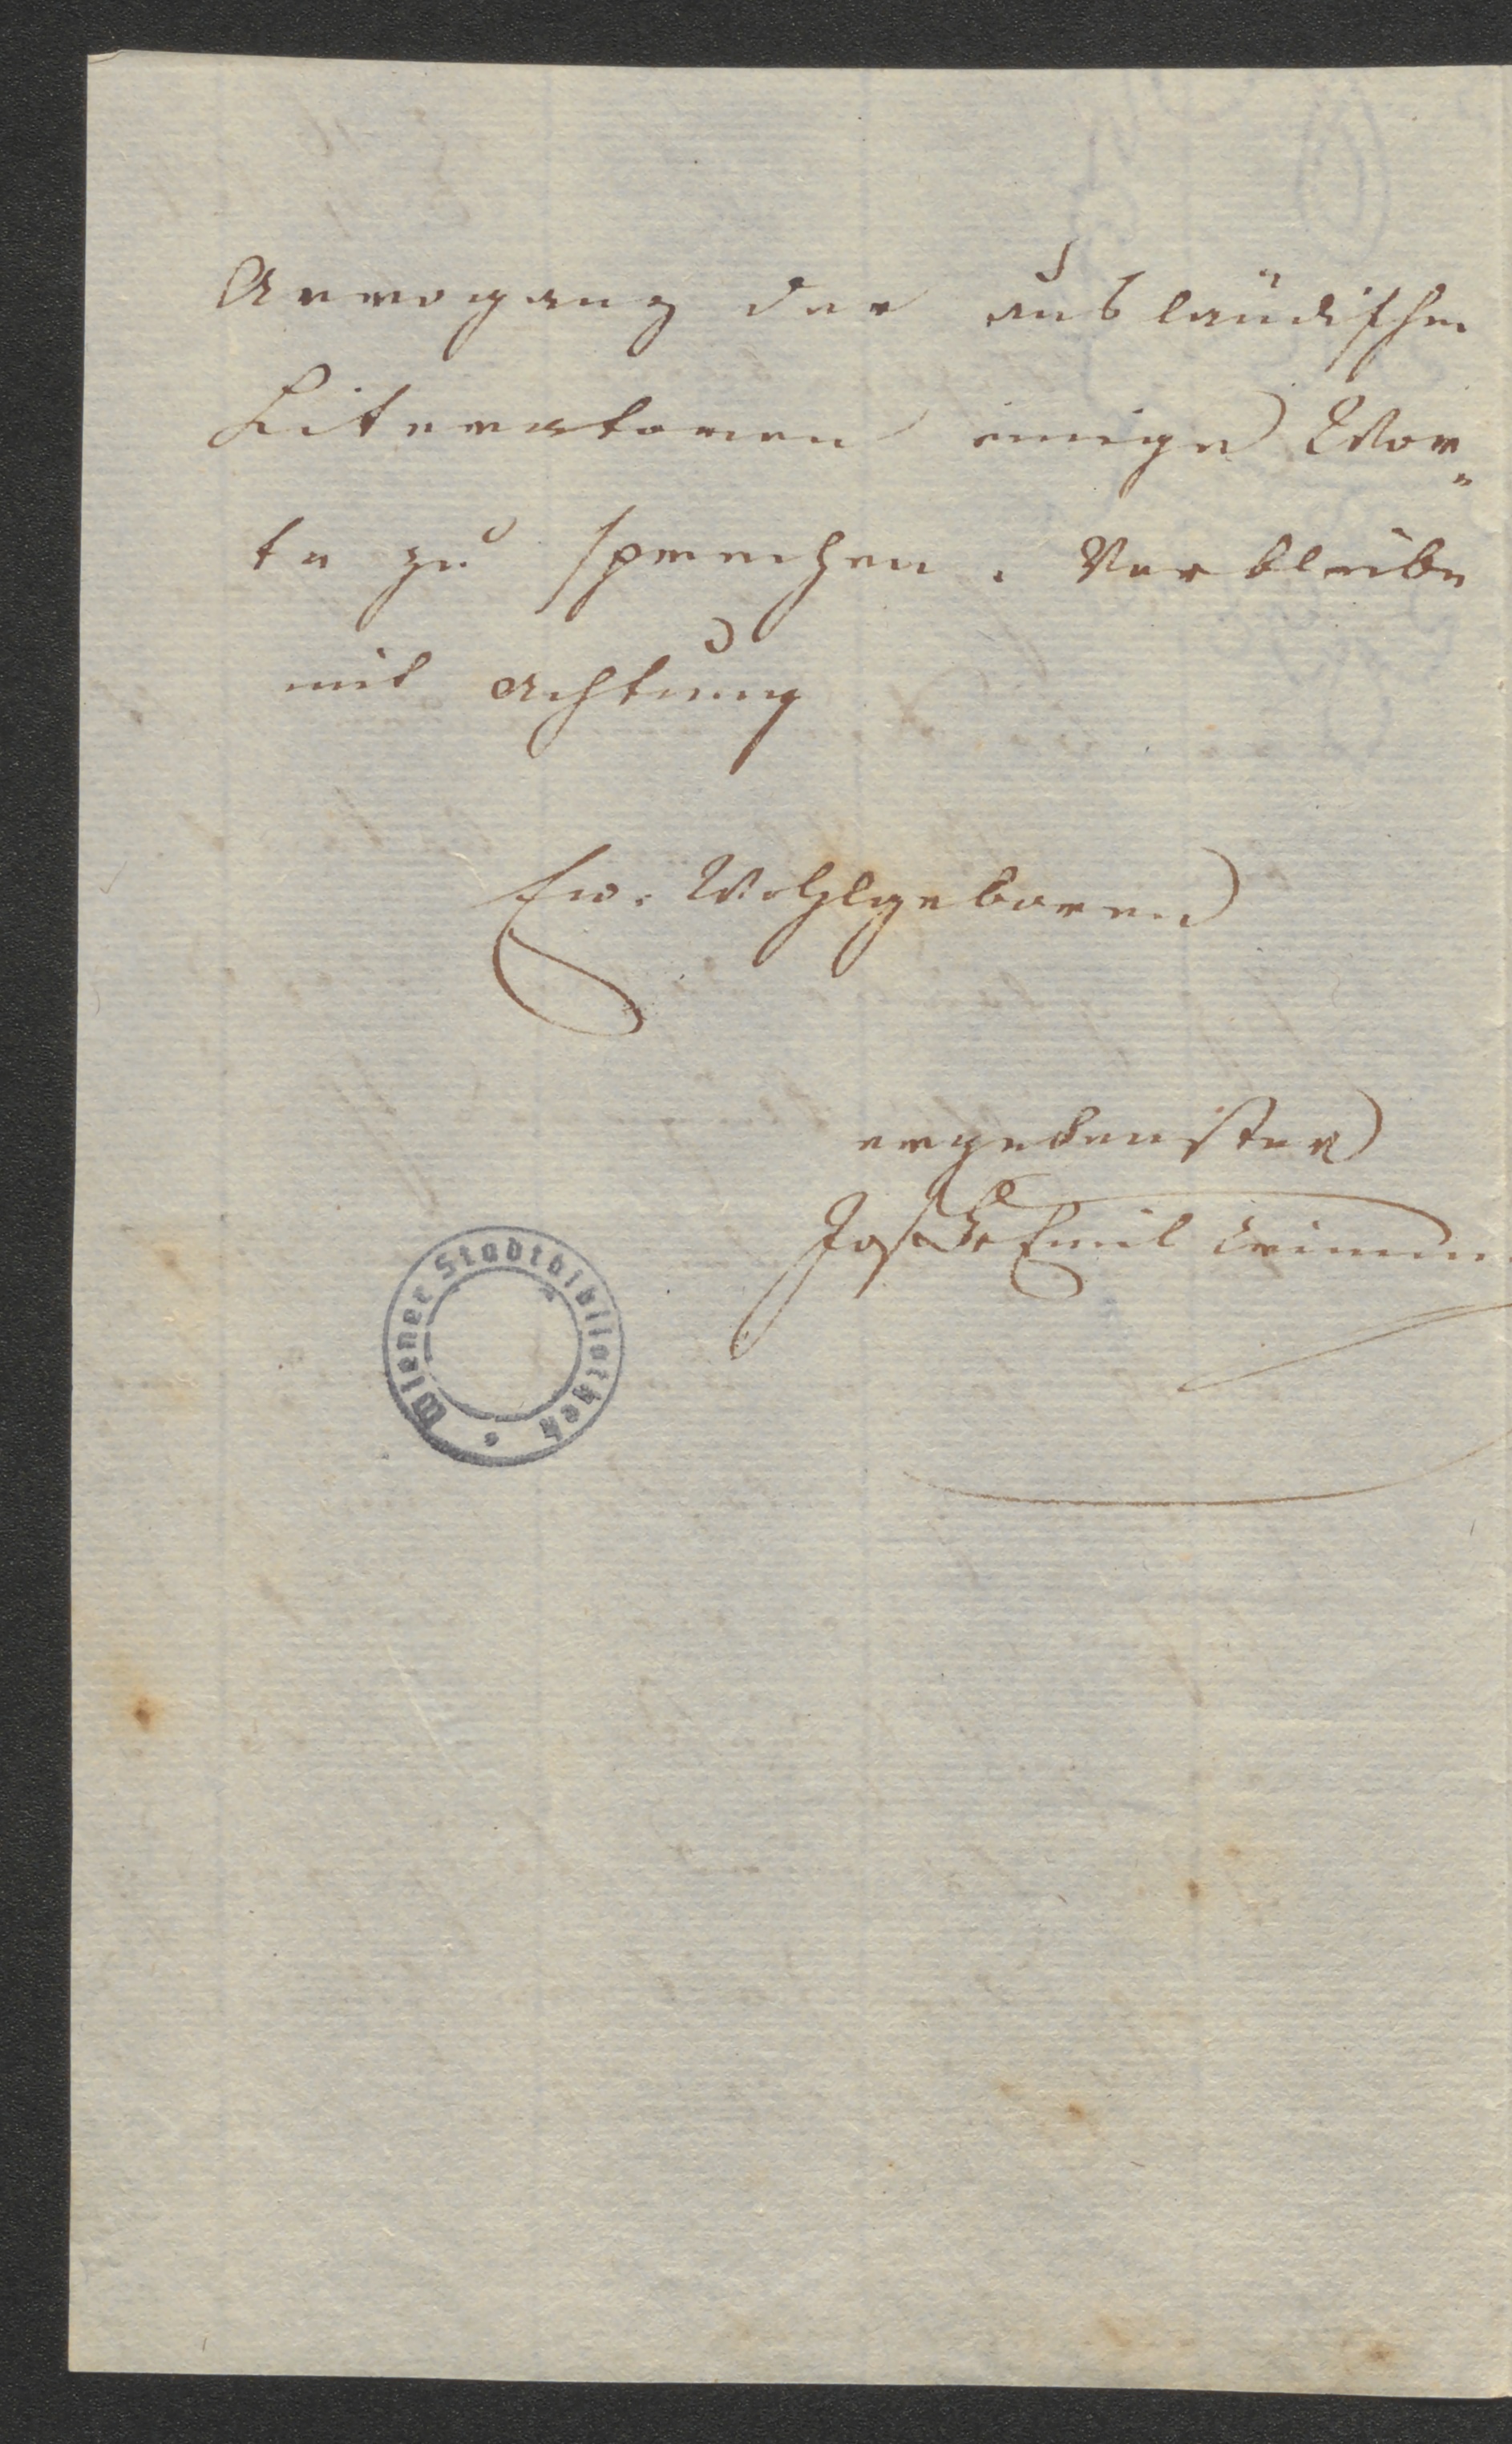 Arroganz der ausländischen
Literatoren einige Wor=
te zu sprechen. Verbleibe
mit Achtung
Ew. Wohlgeboren
ergebenster
Emil
Wiener Stadtbibliothek